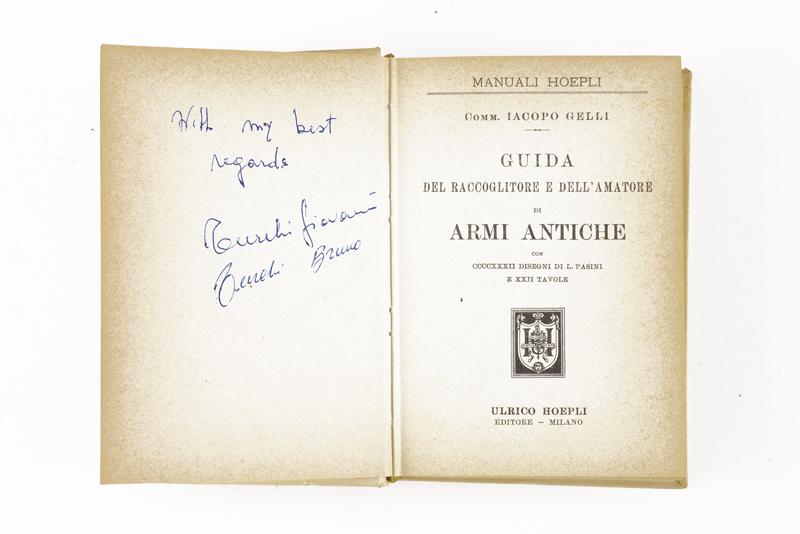 With my best
regards
Turchi Giovanni
Turchi Bruno
MANUALI HOEPLI
COMM. IACOPO GELLI
GUIDA
DEL RACCOGLITORE E DELL'AMATORE
DI
ARMI ANTICHE
CON
CCCCXXXII DISEGNI DI L. PASINI
E XXII TAVOLE
ULRICO HOEPLI
EDITORE – MILANO